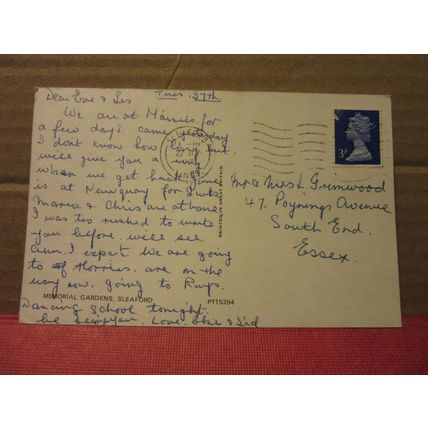 Tues. 27th
Dear Eve & Les
We are at Mavis for
a few days. came yesterday
I don't know how long but
will give you a
when we get back. June
is at Newquay for 2 wks
& Chris are at home
I was too rushed to write
you before. will see
I expect. We are going
to Horries. are on the
way now. going to
Dancing School tonight.
be Love. Elsie & Sid
PRINTED IN GREAT BRITAIN
3P
Mr & Mrs L Grinwood
47, Poynings Avenue
South End.
Essex.
MEMORIAL GARDENS, SLEAFORD
PT15294